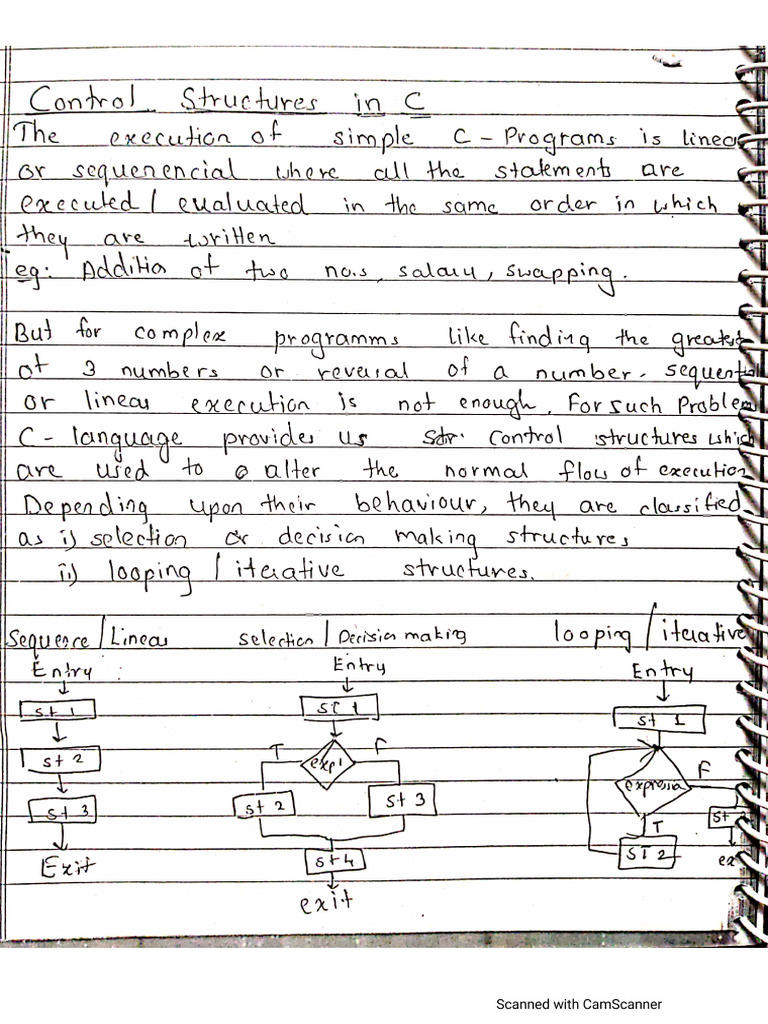 Control Structures in C
The execution of simple C - Programs is linea
or sequerencial where all the statements are
executed / evaluated in the same order in which
they are written
eg: Addition of two no.s, salary, swapping.
But for complex programms like finding the greatest
of 3 numbers or reversal of a number. sequenti
or linear execution is not enough. For such Problem
C - language provides us str. control structures which
are used to alter the normal flow of execution
Depending upon their behaviour, they are classified
as i) selection or decision making structures
ii) looping / iterative structures.
Sequence / Linear selection / Decision making looping / iterative
Entry Entry Entry
st 1 ST 1 st 1
st 2 T exp1 F expressio F
st 3 st 2 st 3 T st
Exit st 4 ST 2 ex
exit
Scanned with CamScanner